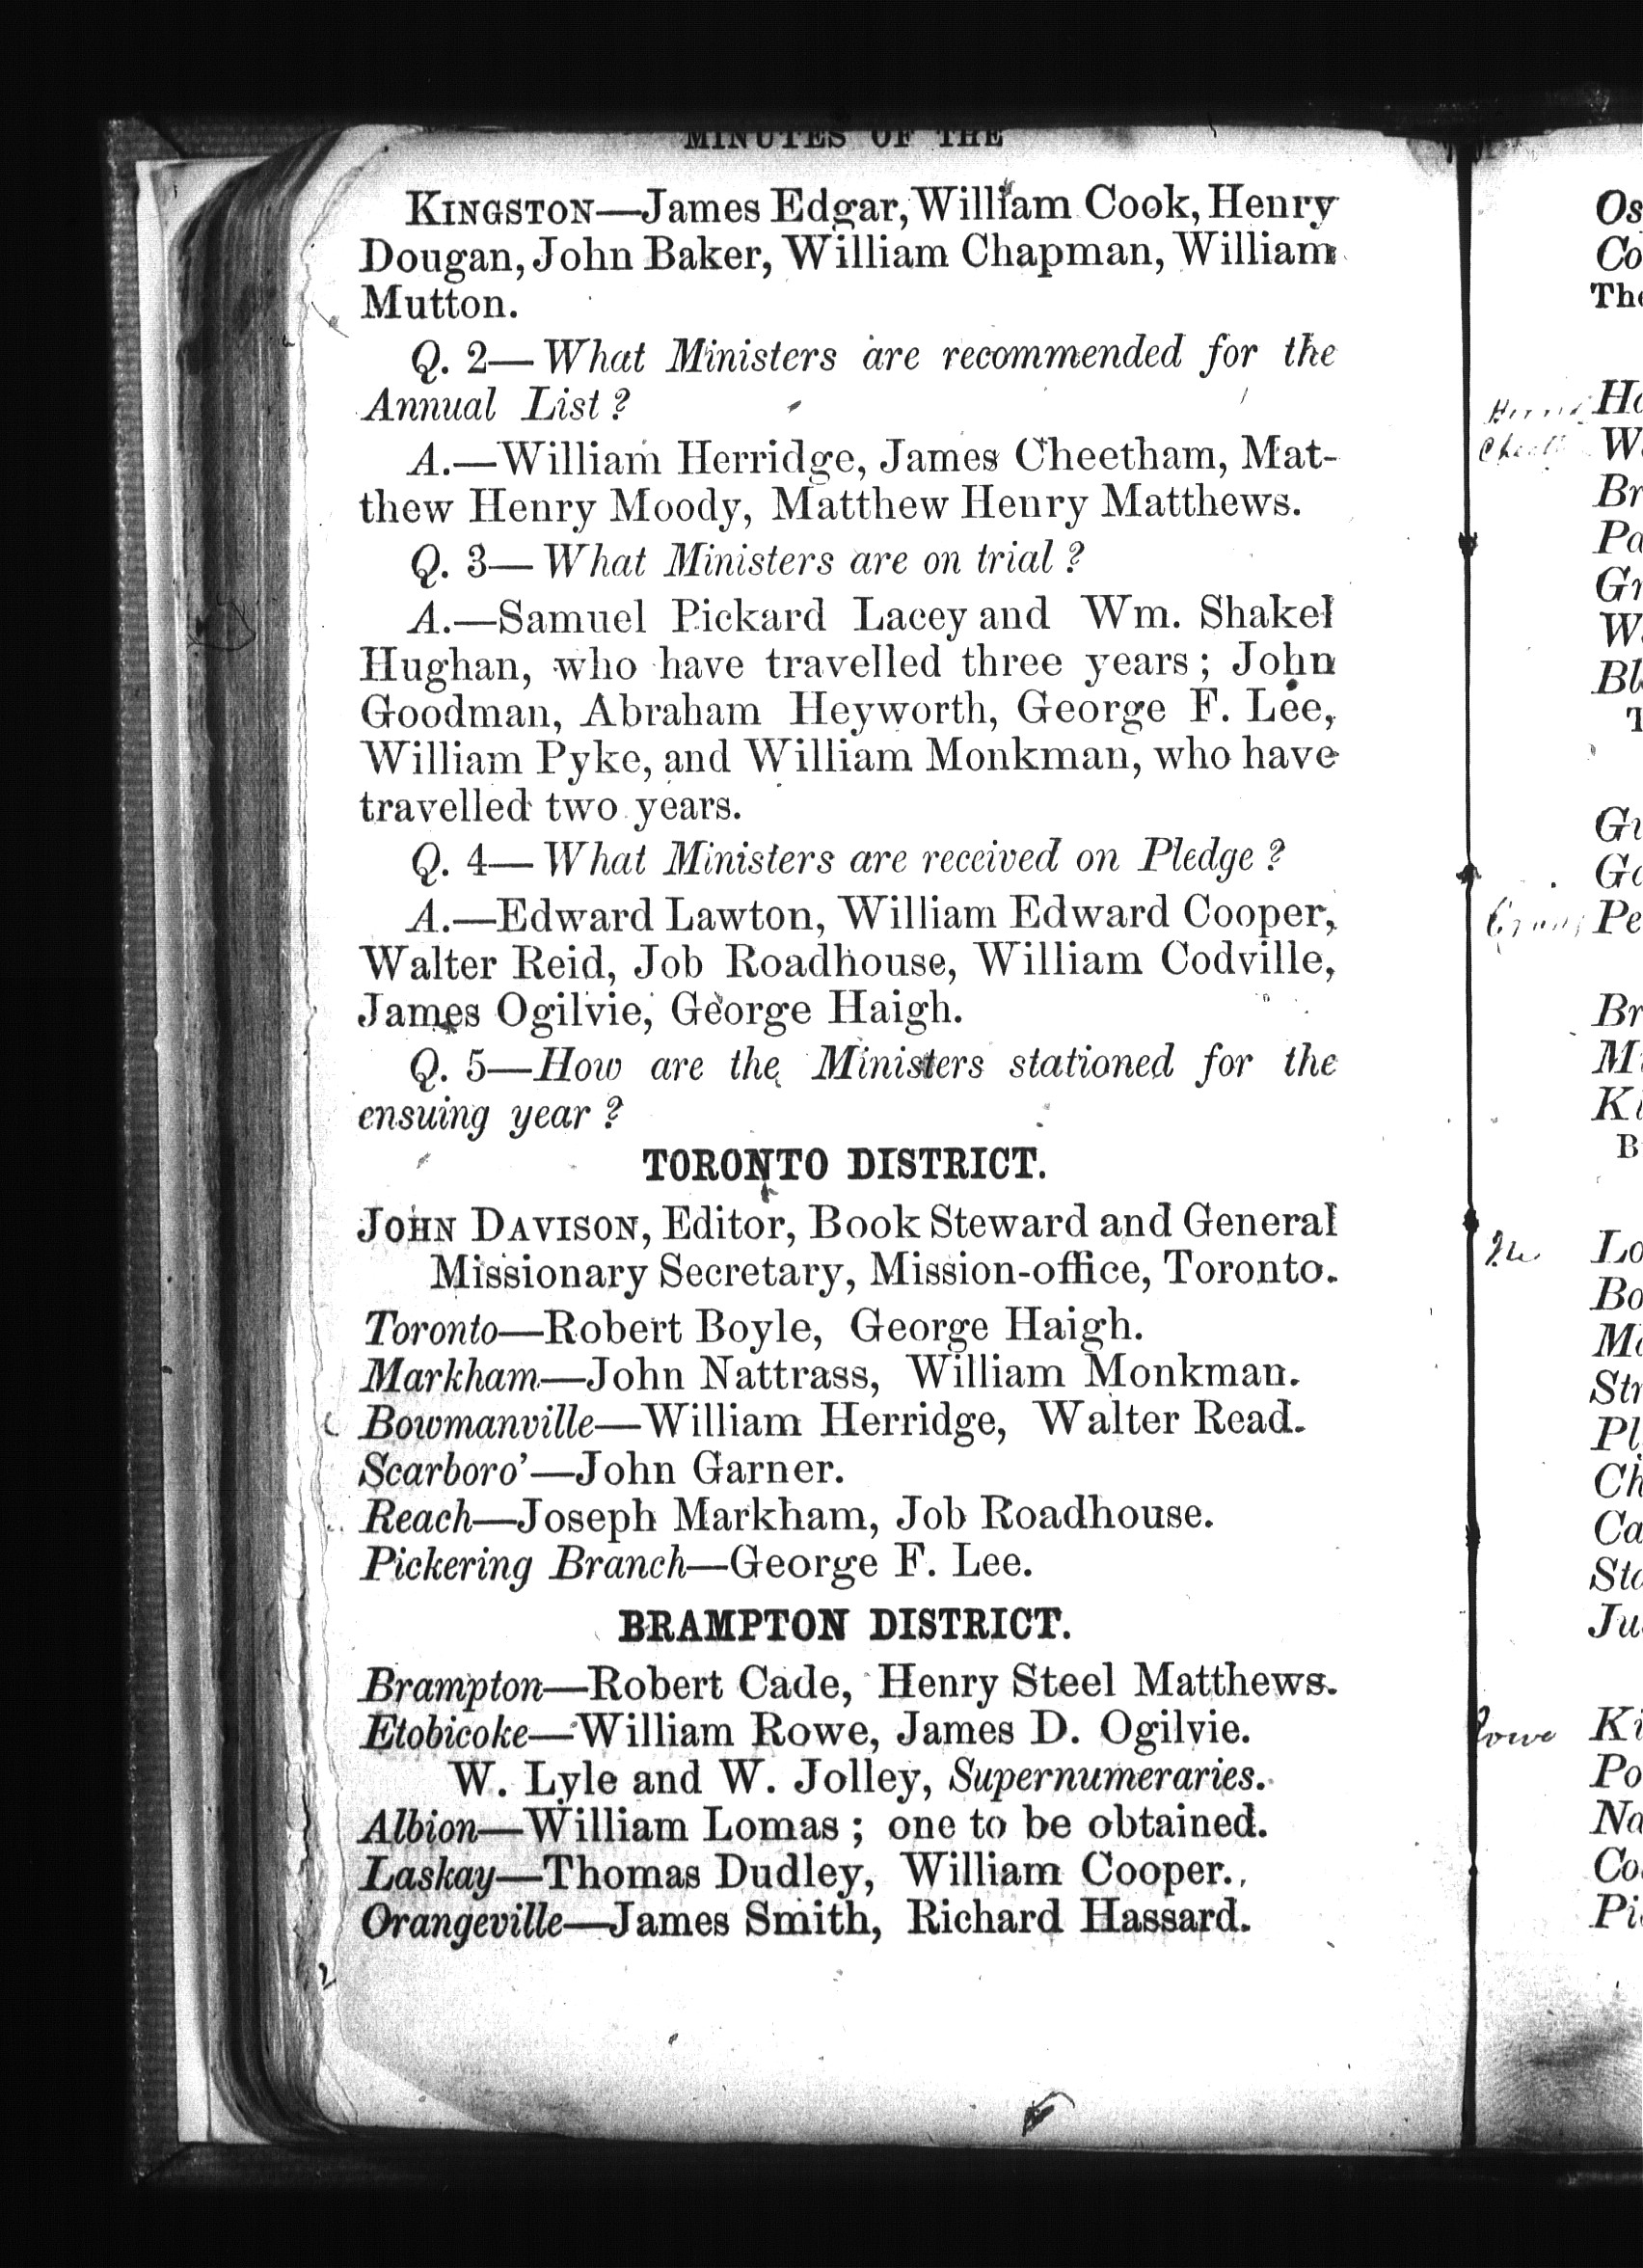 MINUTES OF THE
KINGSTON—James Edgar, William Cook, Henry
Dougan, John Baker, William Chapman, William
Mutton.
Q. 2—What Ministers are recommended for the
Annual List?
A.—William Herridge, James Cheetham, Mat-
thew Henry Moody, Matthew Henry Matthews.
Q. 3—What Ministers are on trial?
A.—Samuel Pickard Lacey and Wm. Shakel
Hughan, who have travelled three years; John
Goodman, Abraham Heyworth, George F. Lee,
William Pyke, and William Monkman, who have
travelled two years.
Q. 4—What Ministers are received on Pledge?
A.—Edward Lawton, William Edward Cooper,
Walter Reid, Job Roadhouse, William Codville,
James Ogilvie, George Haigh.
Q. 5—How are the Ministers stationed for the
ensuing year?
TORONTO DISTRICT.
JOHN DAVISON, Editor, Book Steward and General
Missionary Secretary, Mission-office, Toronto.
Toronto—Robert Boyle, George Haigh.
Markham—John Nattrass, William Monkman.
Bowmanville—William Herridge, Walter Read.
Scarboro'—John Garner.
Reach—Joseph Markham, Job Roadhouse.
Pickering Branch—George F. Lee.
BRAMPTON DISTRICT.
Brampton—Robert Cade, Henry Steel Matthews.
Etobicoke—William Rowe, James D. Ogilvie.
W. Lyle and W. Jolley, Supernumeraries.
Albion—William Lomas; one to be obtained.
Laskay—Thomas Dudley, William Cooper.
Orangeville—James Smith, Richard Hassard.
Os
Co
The
Ha
W
Br
Pa
Gr
W
Bl
Gu
Pe
Br
K
B
Lo
Bo
Str
Pl
Ch
Ca
Sta
Ju
Rowe
Ki
Po
Na
Co
Pi